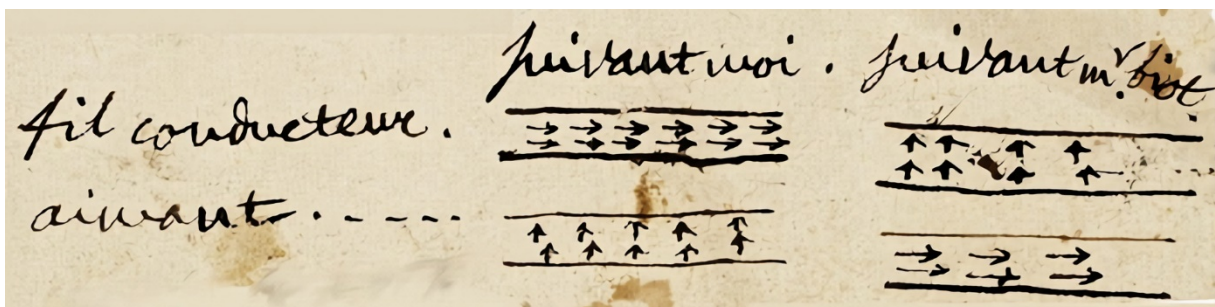 suivant moi . suivant mr. biot.
fil conducteur.
aimant . - - - -